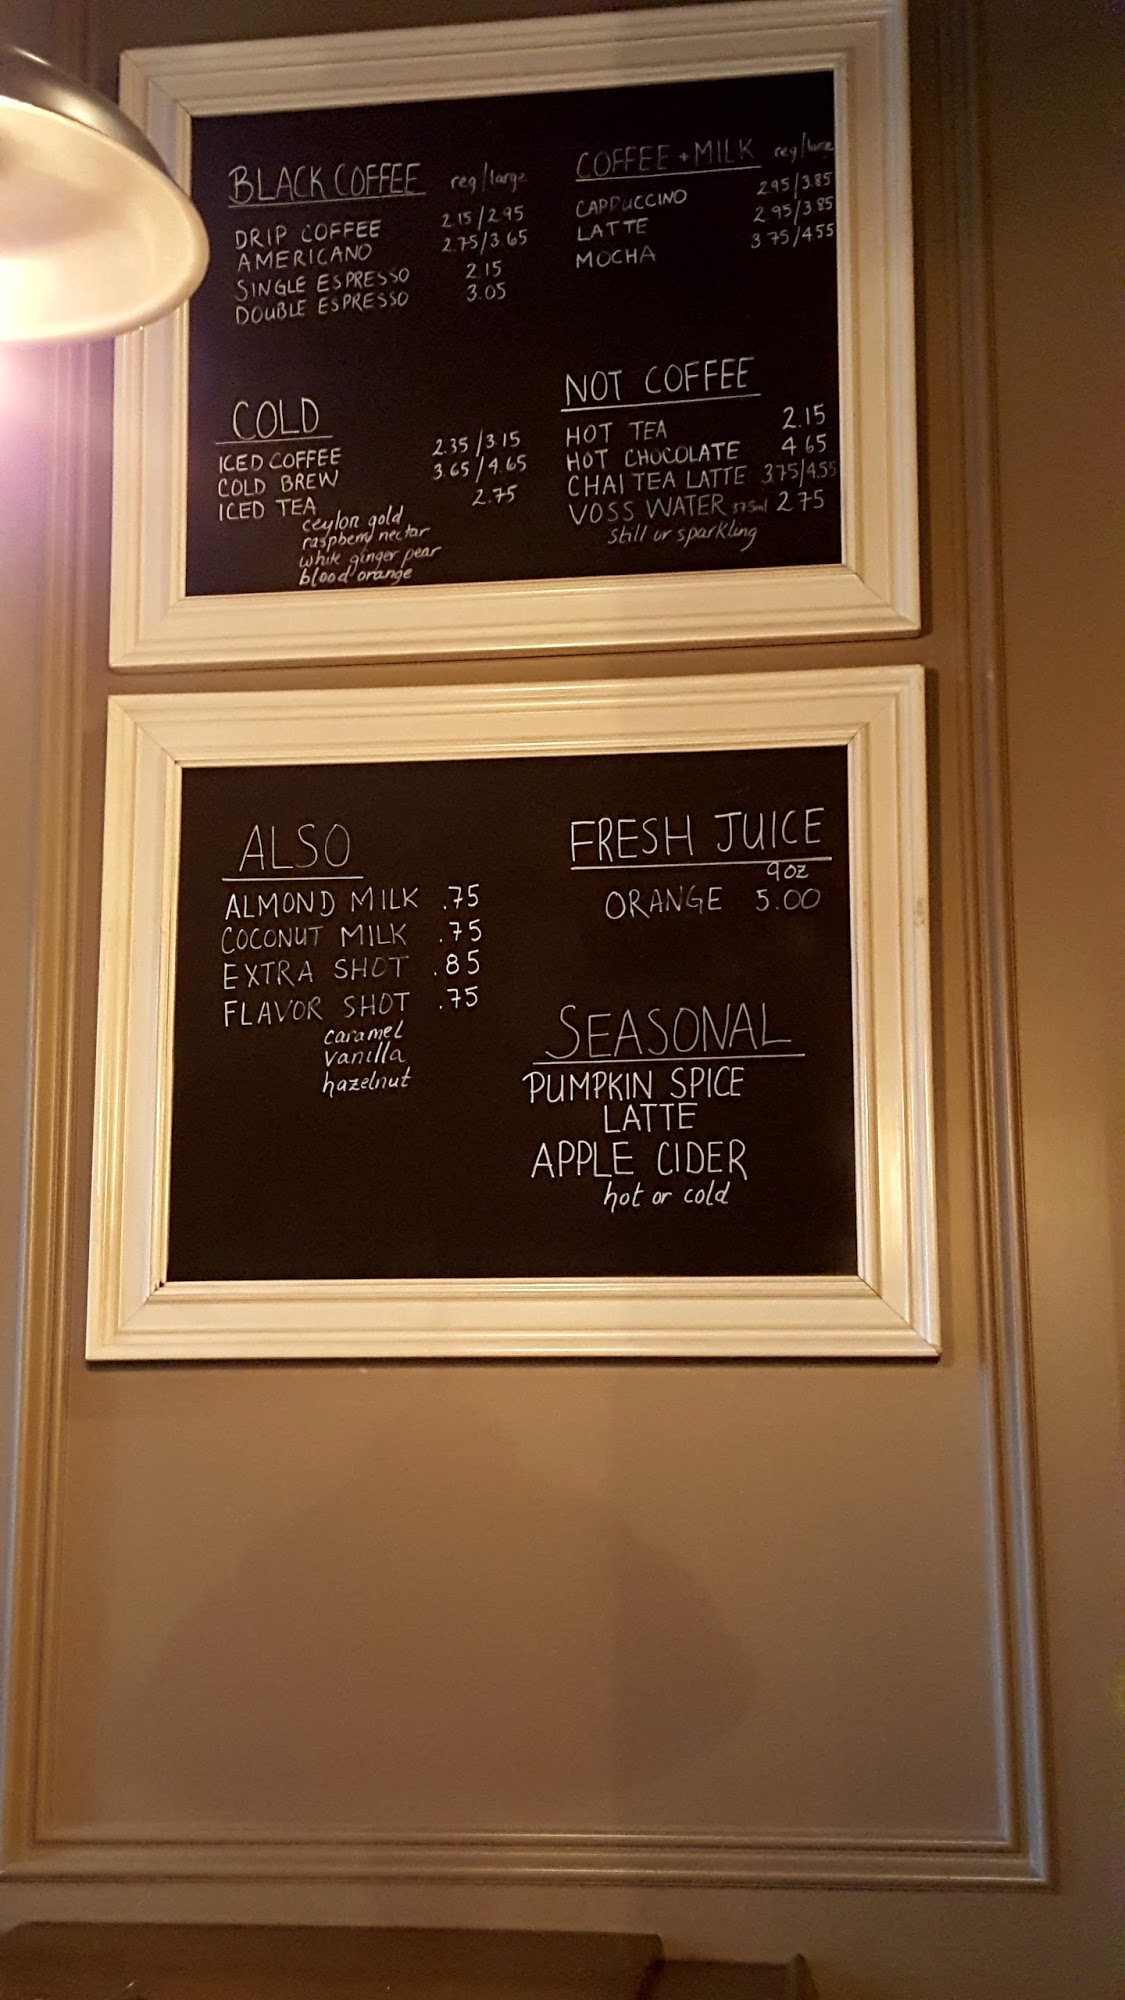 BLACK COFFEE reg/large
DRIP COFFEE 2.15/2.95
AMERICANO 2.75/3.65
SINGLE ESPRESSO 2.15
DOUBLE ESPRESSO 3.05
COFFEE + MILK reg/large
CAPPUCCINO 2.95/3.85
LATTE 2.95/3.85
MOCHA 3.75/4.55
COLD
ICED COFFEE 2.35/3.15
COLD BREW 3.65/4.65
ICED TEA 2.75
ceylon gold
raspberry nectar
white ginger pear
blood orange
NOT COFFEE
HOT TEA 2.15
HOT CHOCOLATE 4.65
CHAI TEA LATTE 3.75/4.55
VOSS WATER 375ml 2.75
still or sparkling
ALSO
ALMOND MILK .75
COCONUT MILK .75
EXTRA SHOT .85
FLAVOR SHOT .75
caramel
vanilla
hazelnut
FRESH JUICE
9oz
ORANGE 5.00
SEASONAL
PUMPKIN SPICE
LATTE
APPLE CIDER
hot or cold